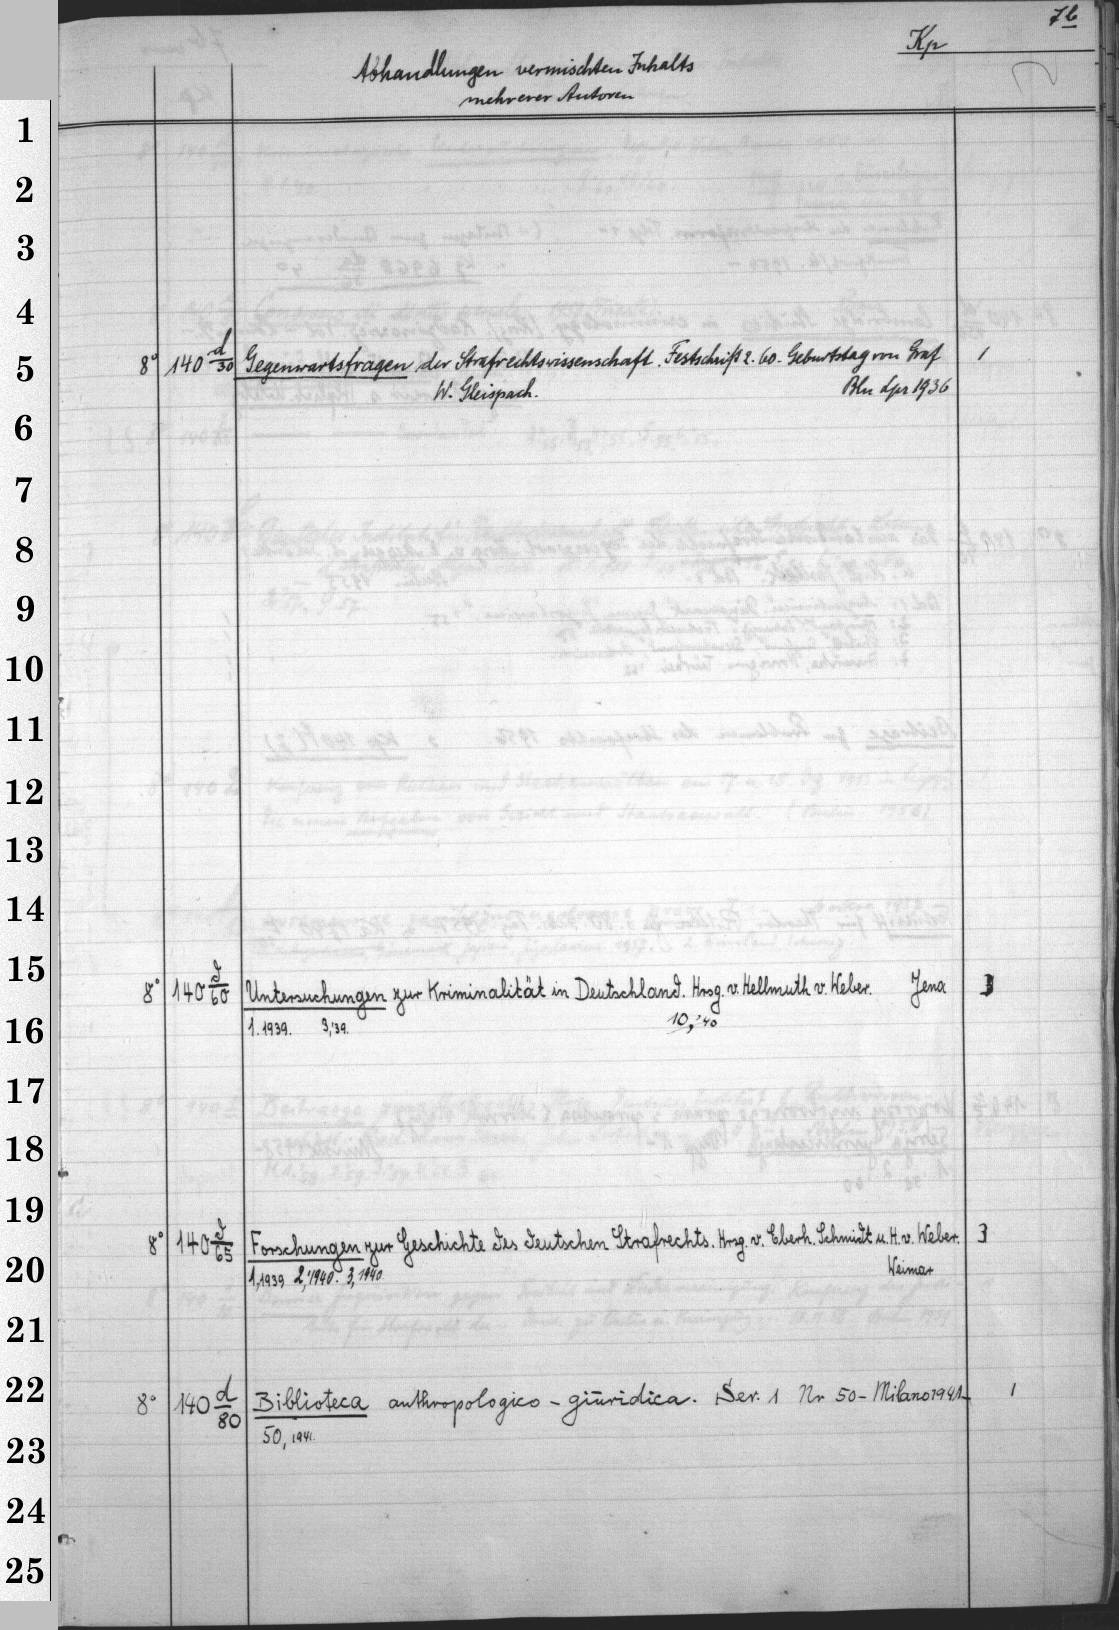 7b
Kp
Abhandlungen vermischten Inhalts
mehrerer Autoren
1
2
3
4
5 8° 140 d/30 Gegenwartsfragen der Strafrechtswissenschaft. Festschrift z. 60. Geburtstag von Graf 1
W. Gleispach. Bln Lpz 1936
6
7
8
9
10
11
12
13
14
15 8° 140 d/60 Untersuchungen zur Kriminalität in Deutschland. Hrsg. v. Hellmuth v. Weber. Jena 3
16 1. 1939. 3,'39. 10,'40
17
18
19 8° 140 d/65 Forschungen zur Geschichte des deutschen Strafrechts. Hrsg. v. Eberh. Schmidt u. H. v. Weber. 3
Weimar
20 1,1939 2,1940. 3,1940
21
22 8° 140 d/80 Biblioteca anthropologico-giuridica. Ser. 1 Nr 50- Milano 1941- 1
23 50, 1941.
24
25